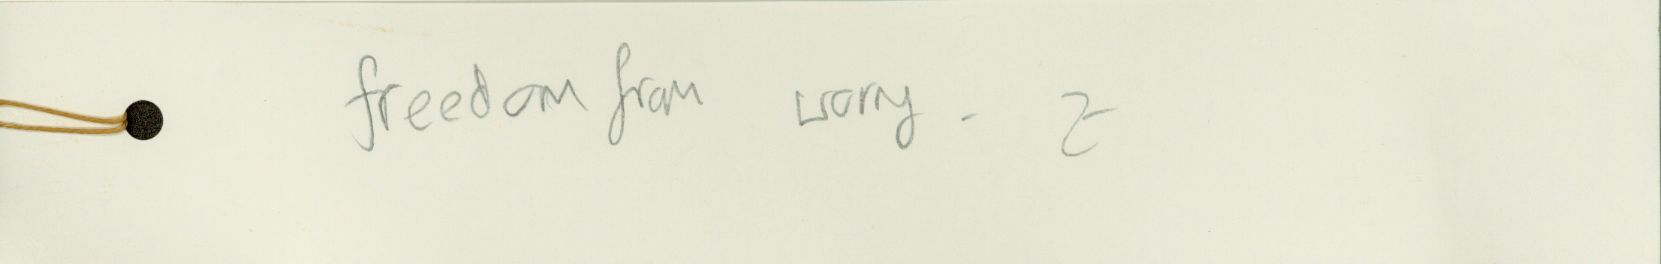 freedom from worry - Z